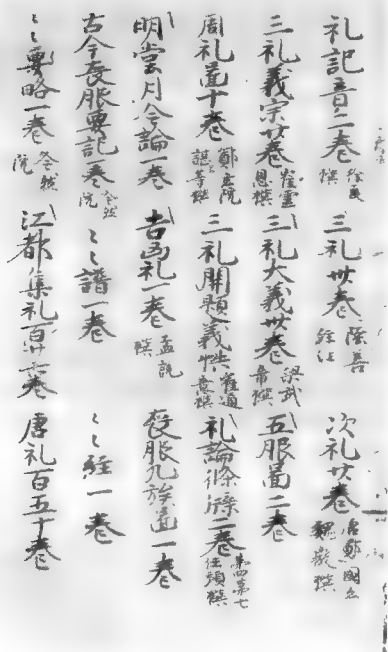 礼記音二卷 徐爰撰 三礼卅卷 陈善銓注 次礼廿卷 唐鄭國公魏徵撰
三礼義宗卅卷 崔靈恩撰 三礼大義卅卷 梁武帝撰 五服啚二卷
周礼啚十卷 鄭玄阮諶等撰 三礼開題義 崔遍撰 礼論條牒二卷 任預撰
明堂月令論一卷 吉凶礼一卷 孟説撰 喪服九族啚一卷
古今喪服要記一卷 〻〻譜一卷 〻〻經一卷
〻〻要略一卷 江都集礼百廿六卷 唐礼百五十卷